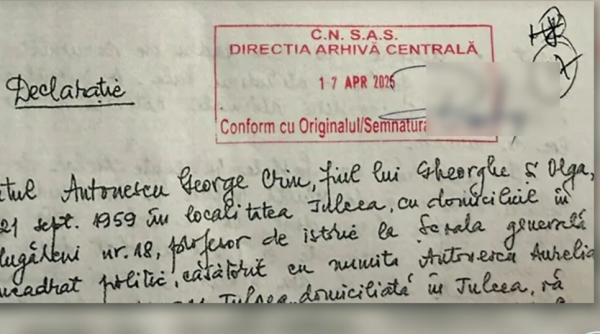 C.N. S.A.S.
DIRECTIA ARHIVĂ CENTRALĂ
17 APR 2025
Conform cu Originalul/Semnatura
Declarație
Antonescu George Crin, fiul lui Gheorghe și Olga,
21 sept. 1959 în localitatea Tulcea, cu domiciliul în
nr. 18, profesor de istorie la Școala generală
politic, căsătorit cu numita Antonescu Aurelia
Tulcea, domiciliată în Tulcea,